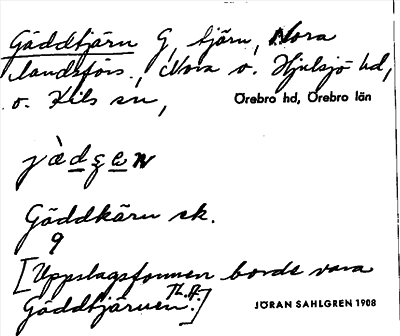 Gäddtjärn G, tjärn, Nora
landsförs., Nora o. Hjulsjö hd,
o. Kils sn, Örebro hd, Örebro län
Gäddkärn sk.
9
[Uppslagsformen borde vara
Gäddtjärnen. Th. A.]
JÖRAN SAHLGREN 1908